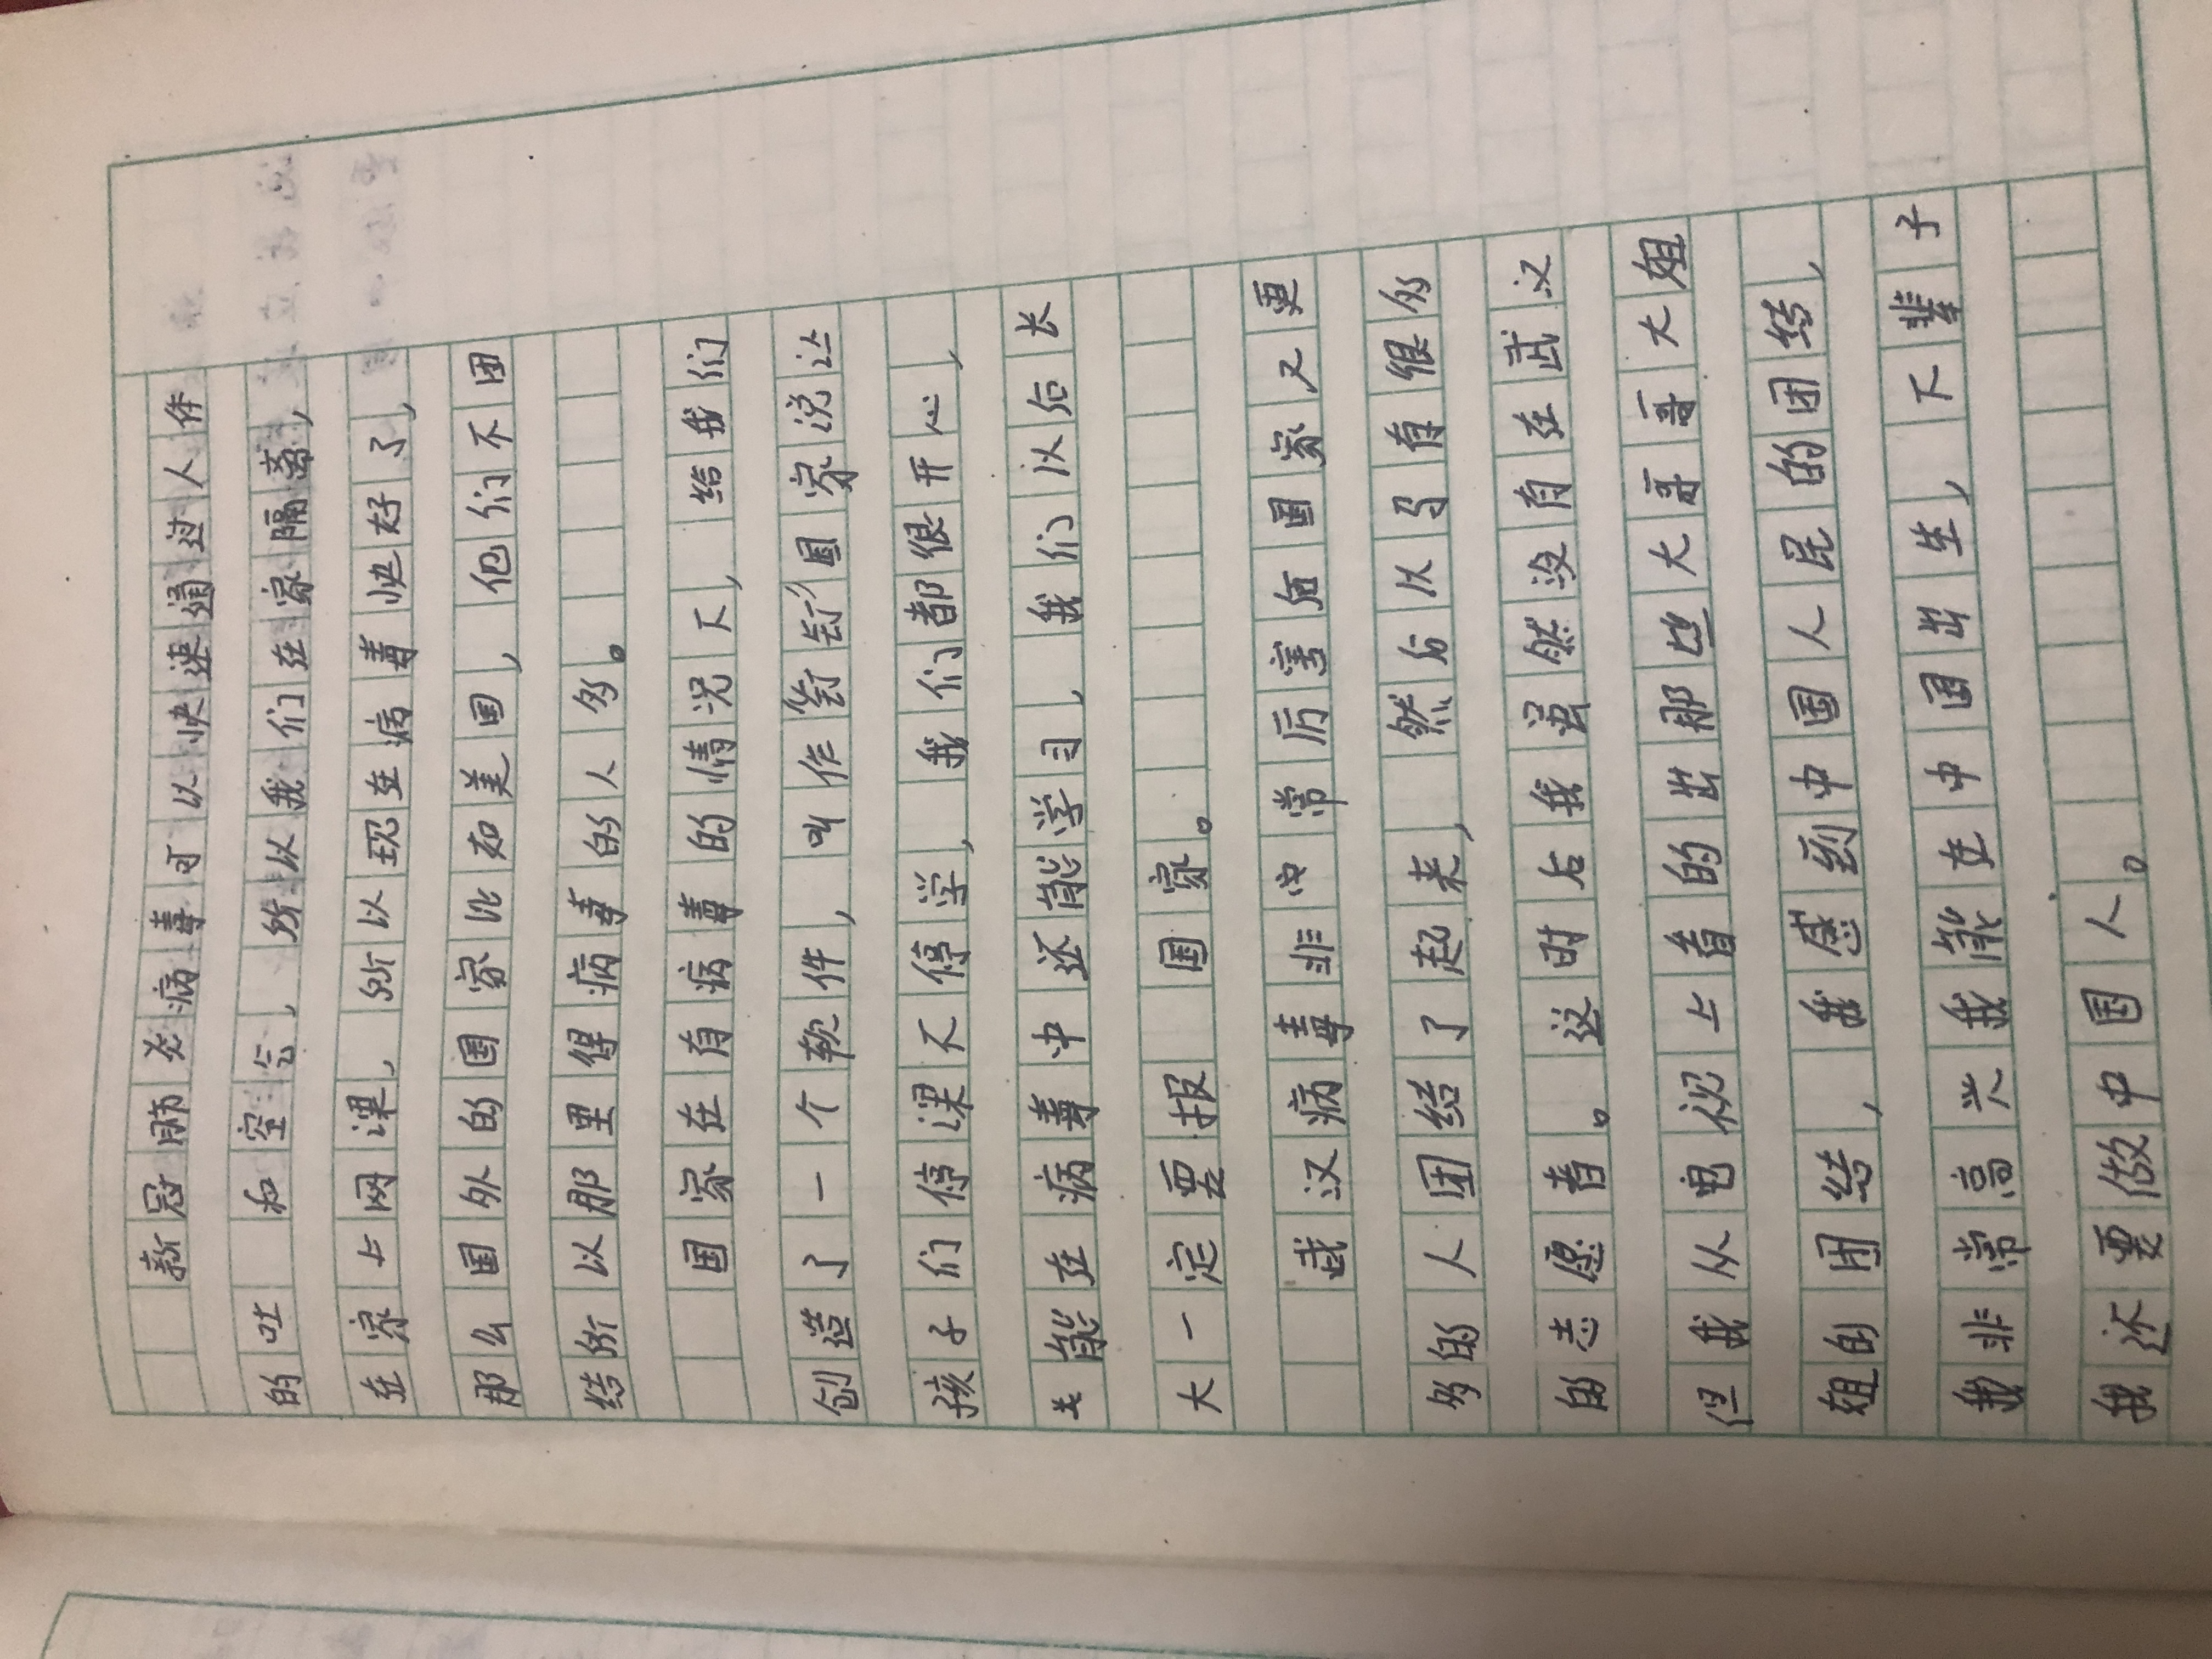 新冠肺炎病毒可以快速通过人体
的吐 和空气，所以我们在家隔离，
在家上网课，所以现在病毒快好了，
那么国外的国家比如美国，他们不团
结所以那里得病毒的人多。
国家在有病毒的情况下，给我们
创造了一个软件，叫作钉钉国家说让
孩子们停课不停学，我们都很开心，
能在病毒中还能学习，我们以后长
大一定要报 国家。
武汉病毒非常厉害但国家又更
多的人团结了起来，然后以了有很多
的志愿者。这时后我虽然没有在武汉
但我从电视上看的出那些大哥哥大姐
姐的团结，我感到中国人民的团结，
我非常高兴我能在中国出生，下辈子
我还要做中国人。